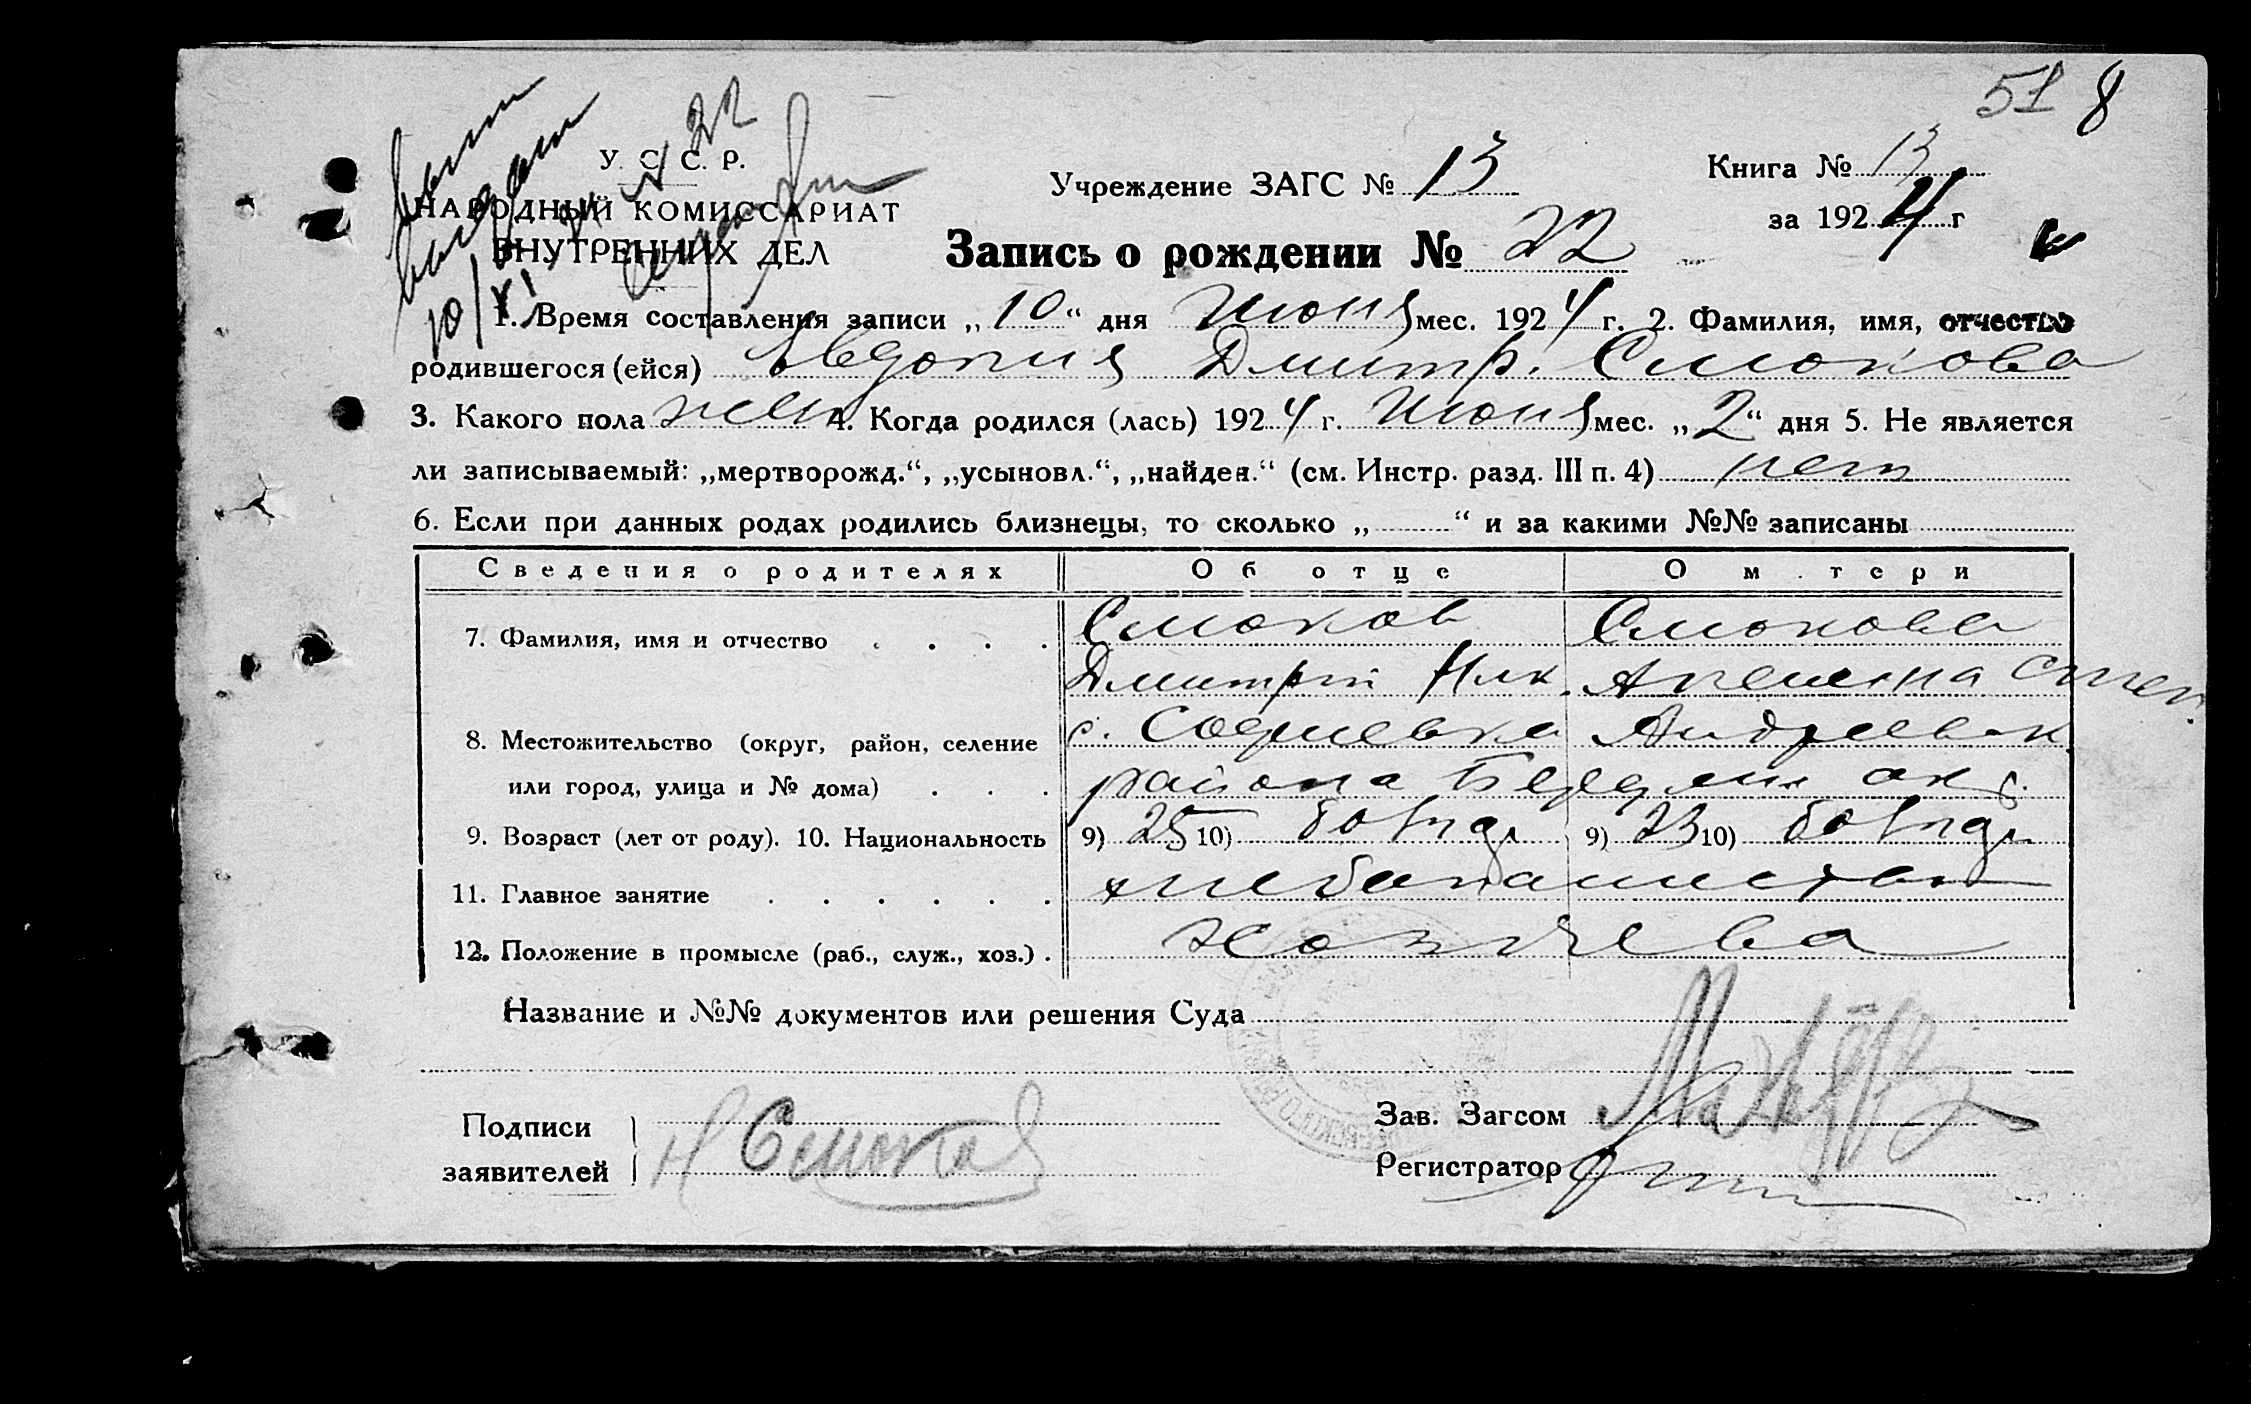 51 8
У. С. С. Р.
НАРОДНЫЙ КОМИССАРИАТ
ВНУТРЕННИХ ДЕЛ
Вып
выдан
10/XI
№ 22
Учреждение ЗАГС № 13
Книга № 13
за 1924 г
Запись о рождении № 22
1. Время составления записи „10“ дня Июня мес. 1924 г. 2. Фамилия, имя, отчество
родившегося (ейся) Евдокия Дмитр. Смокова
3. Какого пола жен 4. Когда родился (лась) 1924 г. Июня мес. „2“ дня 5. Не является
ли записываемый: „мертворожд.“, „усыновл.“, „найден.“ (см. Инстр. разд. III п. 4) нет
6. Если при данных родах родились близнецы, то сколько „ “ и за какими №№ записаны
Сведения о родителях Об отце О м тери
7. Фамилия, имя и отчество Смоков Смокова
Дмитрий Ник.
8. Местожительство (округ, район, селение с. Софиевка Андреевск.
или город, улица и № дома) района Бердян окр.
9. Возраст (лет от роду). 10. Национальность 9) 25 10) болгар 9) 23 10) болгар
11. Главное занятие хлебопашество
12. Положение в промысле (раб., служ., хоз.) хозяева
Название и №№ документов или решения Суда
Подписи
заявителей
Н Смоков
Зав. Загсом
Регистратор